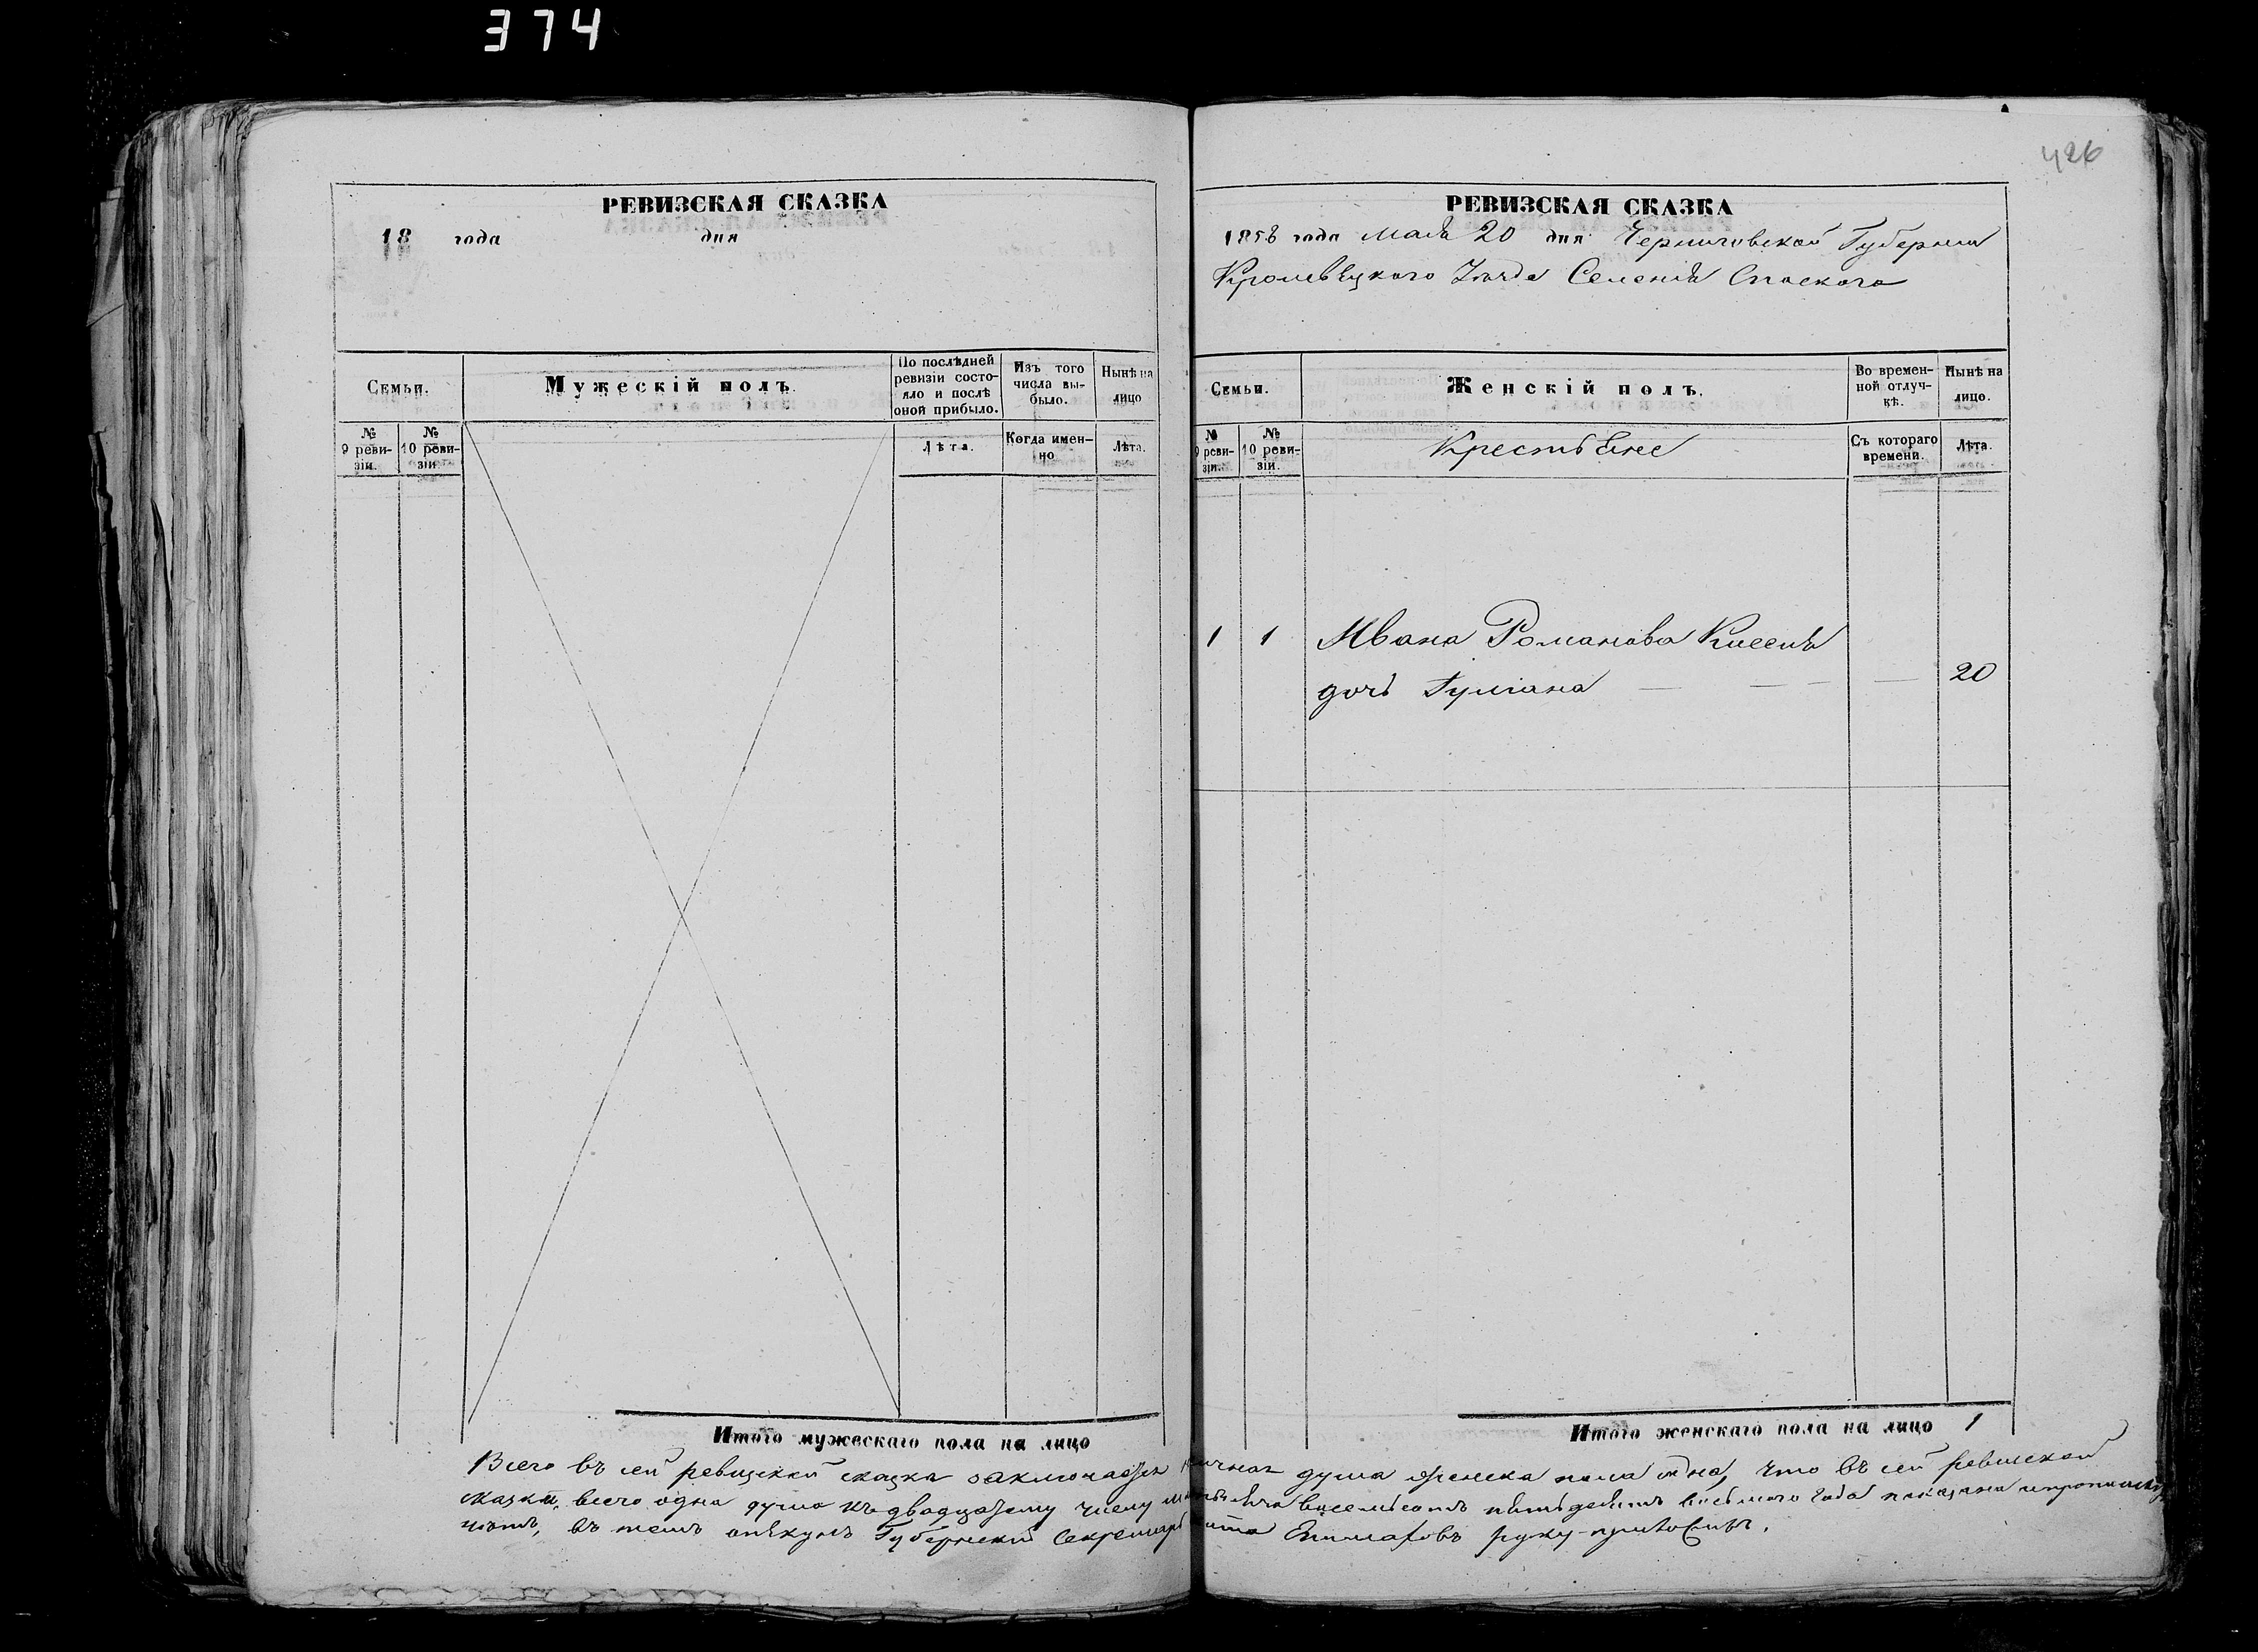 374
426
РЕВИЗСКАЯ СКАЗКА
18 года дня
Семьи.
Мужескій полъ.
По послѣдней ревизіи состояло и послѣ оной прибыло.
Изъ того числа выбыло.
Нынѣ на лицо
№ 9 ревизіи.
№ 10 ревизіи
Лѣта.
Когда именно
Лѣта.
Итого мужескаго пола на лицо
РЕВИЗСКАЯ СКАЗКА
1858 года Мая 20 дня Черниговской Губерніи
Кролевѣцкого Уѣзда Селенія Спаского
Семьи.
Женскій полъ.
Во временной отлучкѣ.
Нынѣ на лицо.
№ 9 ревизіи.
№ 10 ревизіи.
Крестьяне
Съ котораго времени.
Лѣта.
1 1 Ивана Романова
дочь — — — — 20
Итого женскаго пола на лицо 1
Всего въ сей ревизской сказкѣ заключается душа женска пола одна, что въ сей ревизской
сказки, всего одна душа къ двадцатому числу восемьсотъ пятьдесятъ восьмого года показана
нѣтъ, въ томъ опѣкунъ Губернскій Секретарь руку приложилъ.